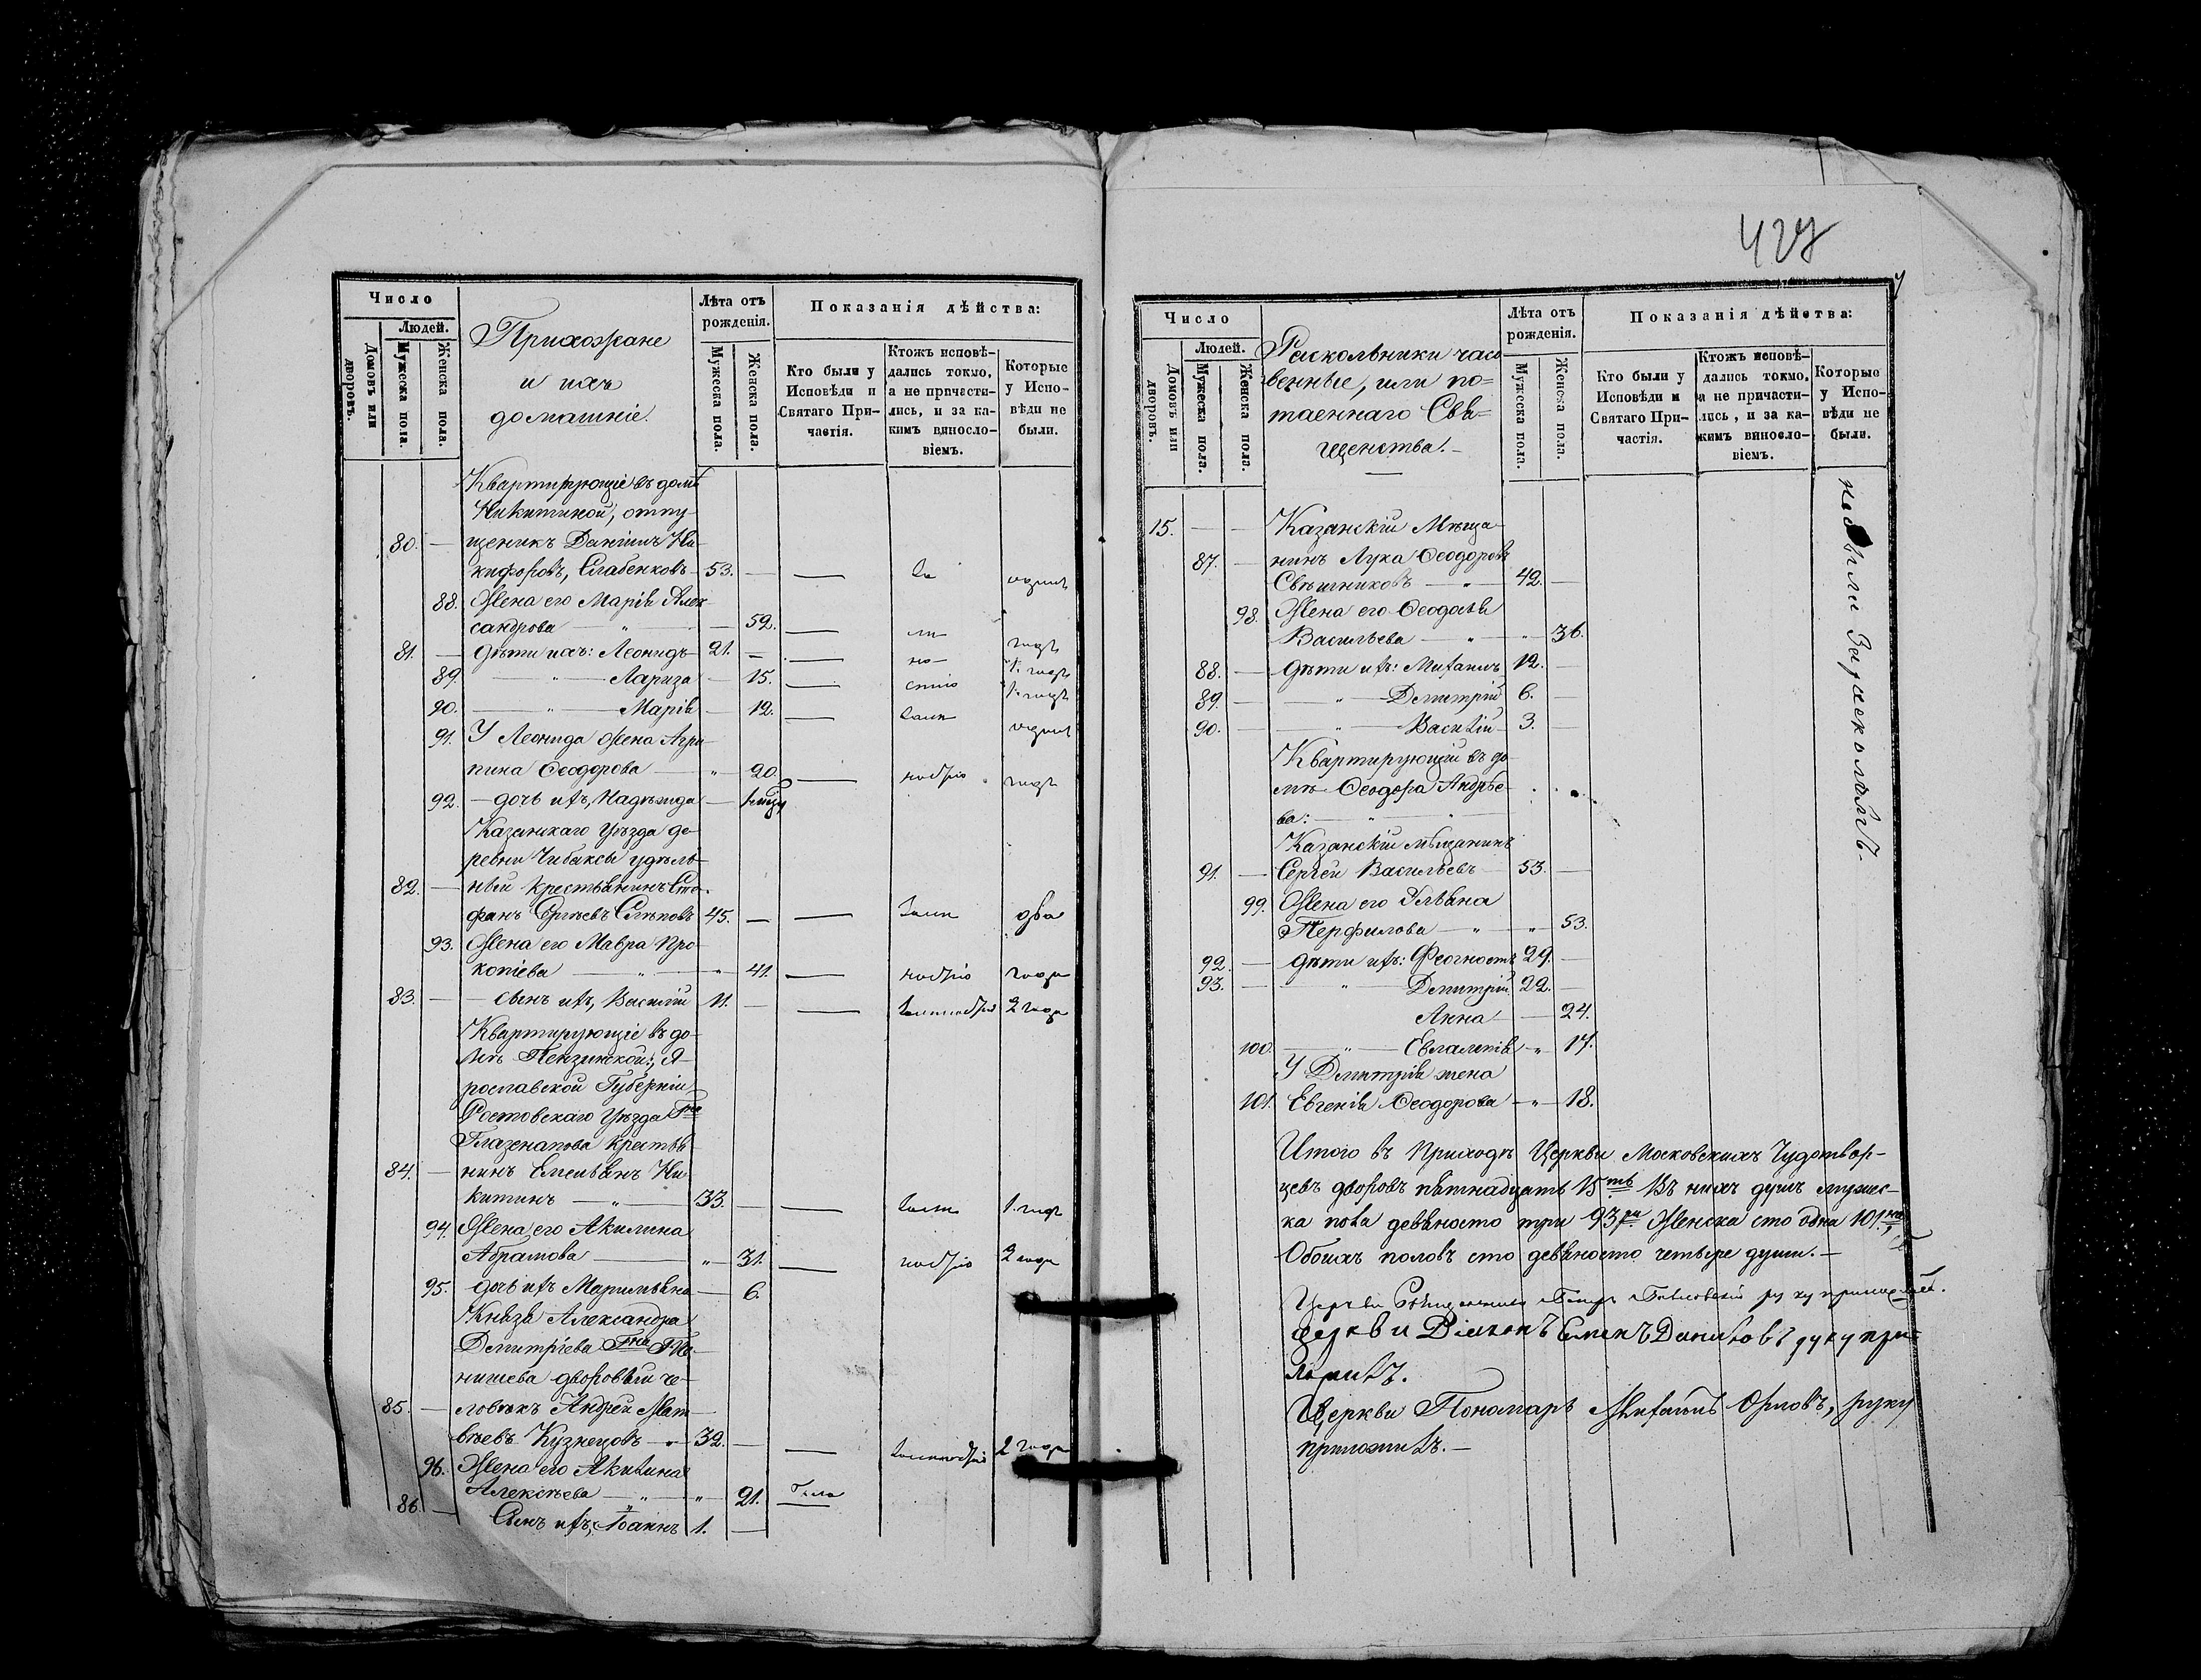 Число
Людей.
Домовъ или дворовъ.
Мужеска пола.
Женска пола.
Прихожане
и ихъ
домашніе.
Лѣта отъ
рожденія.
Мужеска пола.
Женска пола.
Показанія дѣйства:
Кто были у
Исповѣди и
Святаго При-
частія.
Ктожъ исповѣ-
дались токмо,
а не причасти-
лись, и за ка-
кимъ винос­ло-
віемъ.
Которые
у Испо-
вѣди не
были.
Квартирующіе въ домѣ
Никитиной, отпу-
80. — щеникъ Даніилъ Ни-
кифоровъ, Слабенковъ 53. —
88. Жена его Марія Алек-
сандрова — " — 52.
81. — дѣти ихъ: Леонидъ 21. —
89. — " — Лариза — 15.
90. — " — Марія — 12.
91. У Леонида жена Агри-
пина Ѳеодорова — " — 20.
92. — дочь ихъ, Надежда —
Казанскаго Уѣзда де-
ревни Чибаксы удѣль-
82. — ный крестьянинъ Сте-
фанъ Сергѣевъ 45. — два
93. Жена его Мавра Про-
копіева — " — 41. — года
83. — сынъ ихъ, Василій 11. — 2 года
Квартирующіе въ до-
мѣ Пензинской: Я-
рославской Губерніи
Ростовскаго Уѣзда Гна
Глазенапова крестья-
84. — нинъ Емельянъ Ни-
китинъ — " — 33. — 1. годъ
94. Жена его Акилина
Абрамова — " — 31. — 2 года
95. дочь ихъ Маримьяна — 6.
Князя Александра
Димитріева Гна Те-
нишева дворовый че-
85. — ловѣкъ Андрей Мат-
вѣевъ Кузнецовъ — " 32. — 2 года
96. Жена его Акилина
Алексѣева — " — " — 21.
86. — Сынъ ихъ, Іоаннъ 1. —
427
Число
Людей.
Домовъ или дворовъ.
Мужеска пола.
Женска пола.
Раскольники часо
венные, или по=
таеннаго Свя=
щенства. —
Лѣта отъ
рожденія.
Мужеска пола.
Женска пола.
Показанія дѣйства:
Кто были у
Исповѣди и
Святаго При-
частія.
Ктожъ исповѣ-
дались токмо,
а не причасти-
лись, и за ка-
кимъ винос­ло-
віемъ.
Которые
у Испо-
вѣди не
были.
не были За расколомъ.
15. — — Казанскій Мѣща-
87. — нинъ Лука Ѳеодоровъ
Свѣшниковъ — " — 42. —
98. Жена его Ѳеодосья
Васильева — " — " — 36.
88. — дѣти ихъ: Михаилъ 12. —
89. — — " — Димитрій 6. —
90. — — " — Василій 3. —
Квартирующій въ до-
мѣ Ѳеодора Андрѣе-
ва: — " — " —
Казанскій мѣщанинъ
91. — Сергѣй Васильевъ 53. —
99. Жена его Ульяна
Перфилова — " — " — 53.
92. — дѣти ихъ: Феогностъ 29. —
93. — — " — Димитрій 22. —
Анна — — 24.
100. — " — Евлампія — " — 17.
У Димитрія жена
101. Евгенія Ѳеодорова — " — 18.
Итого въ Приходѣ Церкви Московскихъ Чудотвор-
цевъ дворовъ пятнадцать 15ть. Въ нихъ душъ мужес-
ка пола девяносто три 93ри Женска сто одна 101.на
Обоихъ половъ сто девяносто четыре души. —
Церкви Священникъ руку приложилъ.
Церкви Діаконъ Симеонъ Даниловъ руку при-
ложилъ.
Церкви Пономарь Михаилъ Орловъ, руку
приложилъ. —